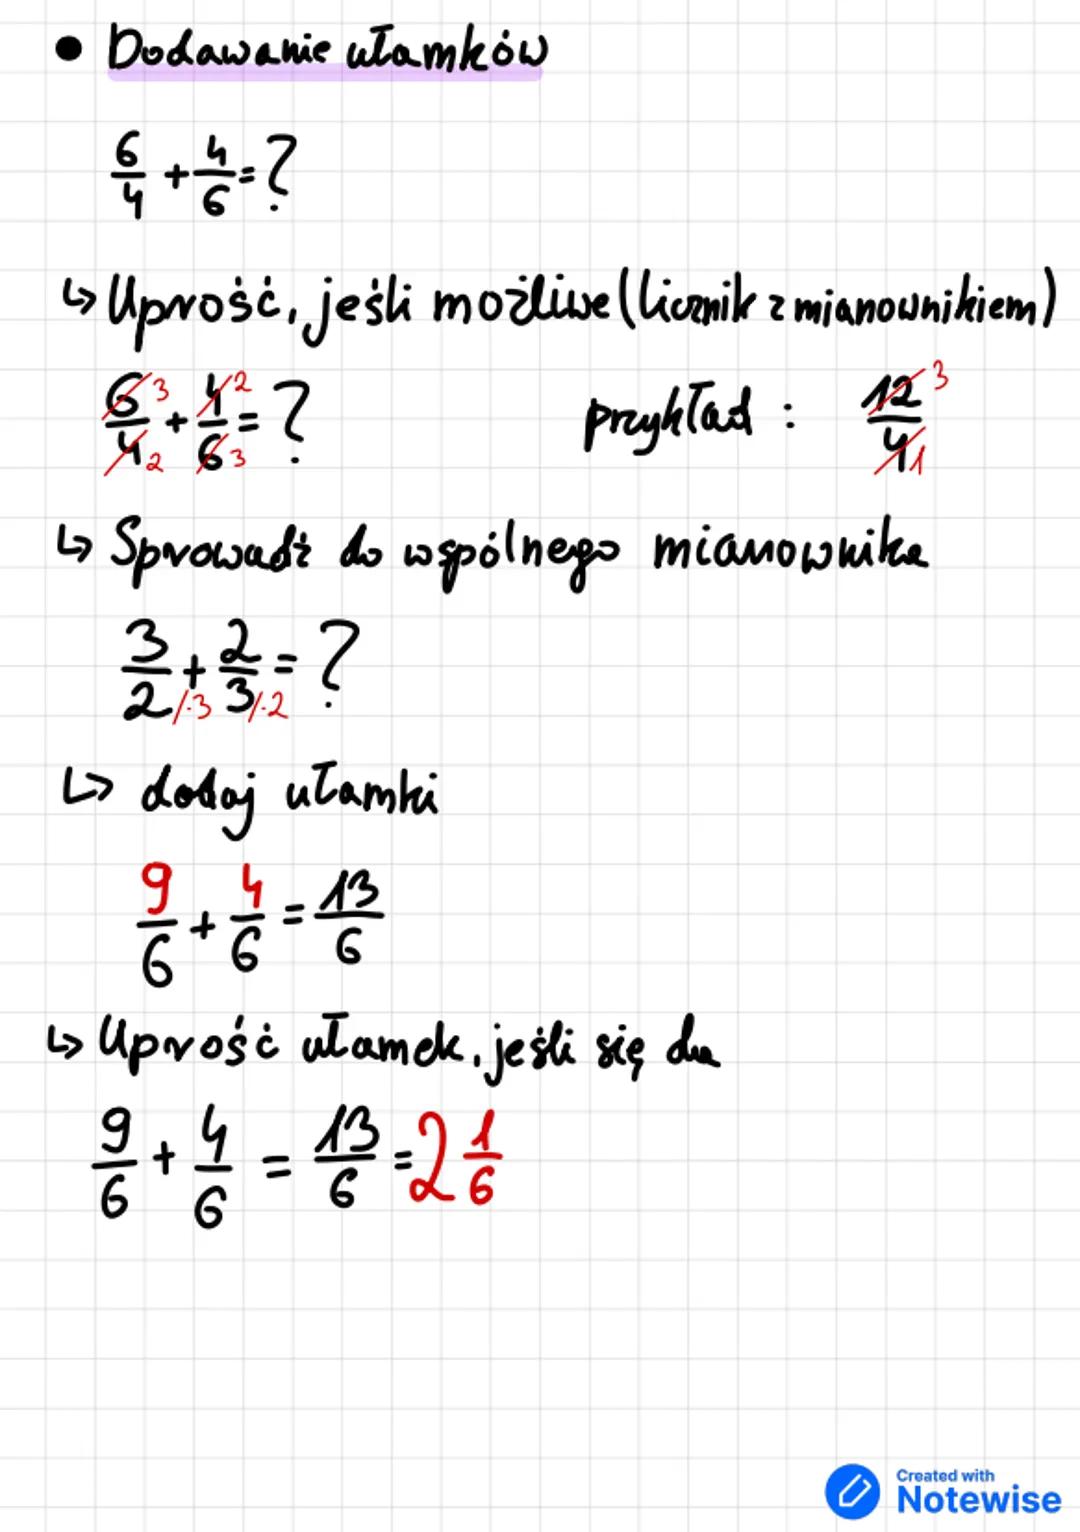 • Dodawanie ułamków
6/4 + 4/6 = ?
↳ Uprość, jeśli możliwe (licznik z mianownikiem)
6/4 3 2 + 4/6 2 3 = ? przykład : 12/4 3 1
↳ Sprowadź do wspólnego mianownika
3/2 /·3 + 2/3 /·2 = ?
↳ dodaj ułamki
9/6 + 4/6 = 13/6
↳ Uprość ułamek, jeśli się da
9/6 + 4/6 = 13/6 = 2 1/6
Created with
Notewise